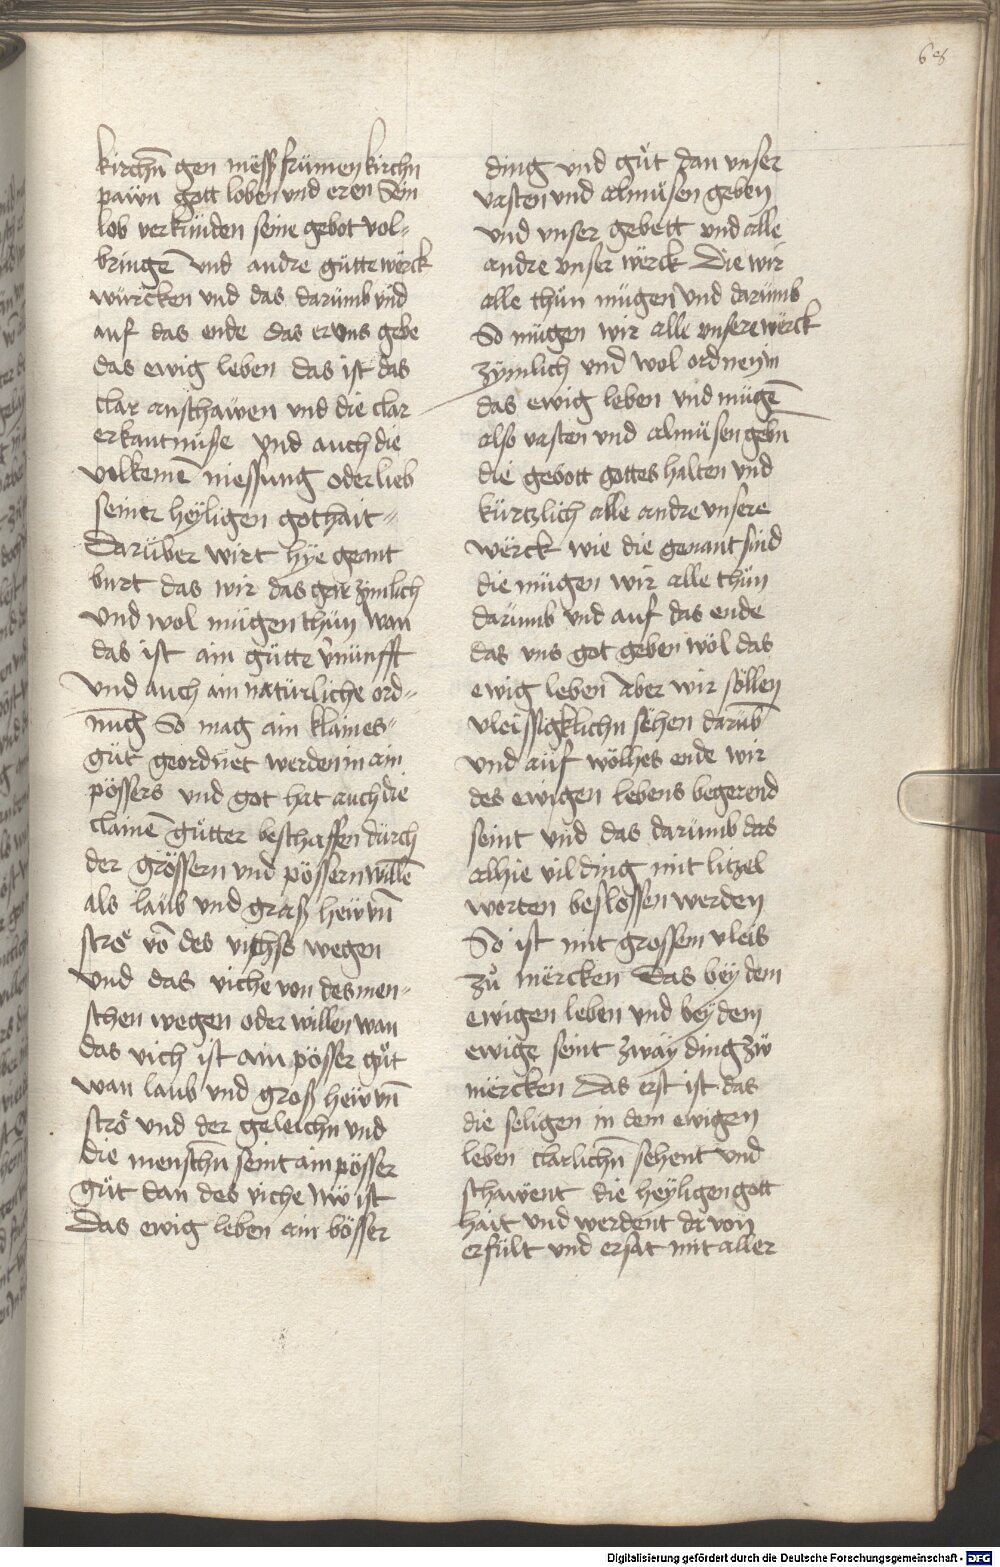 68
kirchn̄ gen mëß frümen kirchn
pawn gott loben und eren Sein
lob verkünden seine gebot vol-
bringē und andre gütte wërck
würcken und das darümb und
auf das ende das er uns gebe
das ewig leben das ist das
clar anschawen und die clar
erkantnüse und auch die
volkemē niessung oder lieb
seiner heyligen gothait
Darüber wirt hye geant
burt das wir das gar zimlich
und wol mügen thun wan
das ist ain gütte v̄nünfft
und auch ain natürliche ord-
nūg So mag ain klaines
güt geordnet werden in ain
pössers und got hat auch die
clainē gütter beschaffen dürch
der grössern und pössern willē
als laub und graß hew un̄
strö vō des vichss wegen
und das viche von des men-
schen wegen oder willen wan
das vich ist ain pösser güt
wan laub und groß hew un̄
strö und der geleichn und
die menschn̄ seint ain pösser
güt dan des viche Nw ist
Das ewig leben ain bösser
ding und güt dan unser
vasten und almüsen geben
und unser gebett und alle
andre unser wërck Die wir
alle thün mügen und darümb
So mügen wir alle unsere wërck
zymlich und wol ordnen in
das ewig leben und mügē
also vasten und almüsen gebn
die gebott gottes halten und
kürtzlich alle andre unsere
wërck wie die genant sind
die mügen wir alle thün
darümb und auf das ende
das uns got geben wöl das
ewig leben Aber wir söllen
vleissigklichn sehen darüb
und auf wölhes ende wir
des ewigen lebens begerend
seint und das darümb das
alhie vil ding mit litzel
worten beslossen werden
So ist mit grossem vleis
zů mërcken Das bey dem
ewigen leben und bey dem
ewige seint zwäy ding zw
mërcken Das erst ist das
die seligen in dem ewigen
leben clarlichn̄ sehent und
schawent die heyligen gott
hait und werdent da von
erfült und ersat mit aller
Digitalisierung gefördert durch die Deutsche Forschungsgemeinschaft - DFG